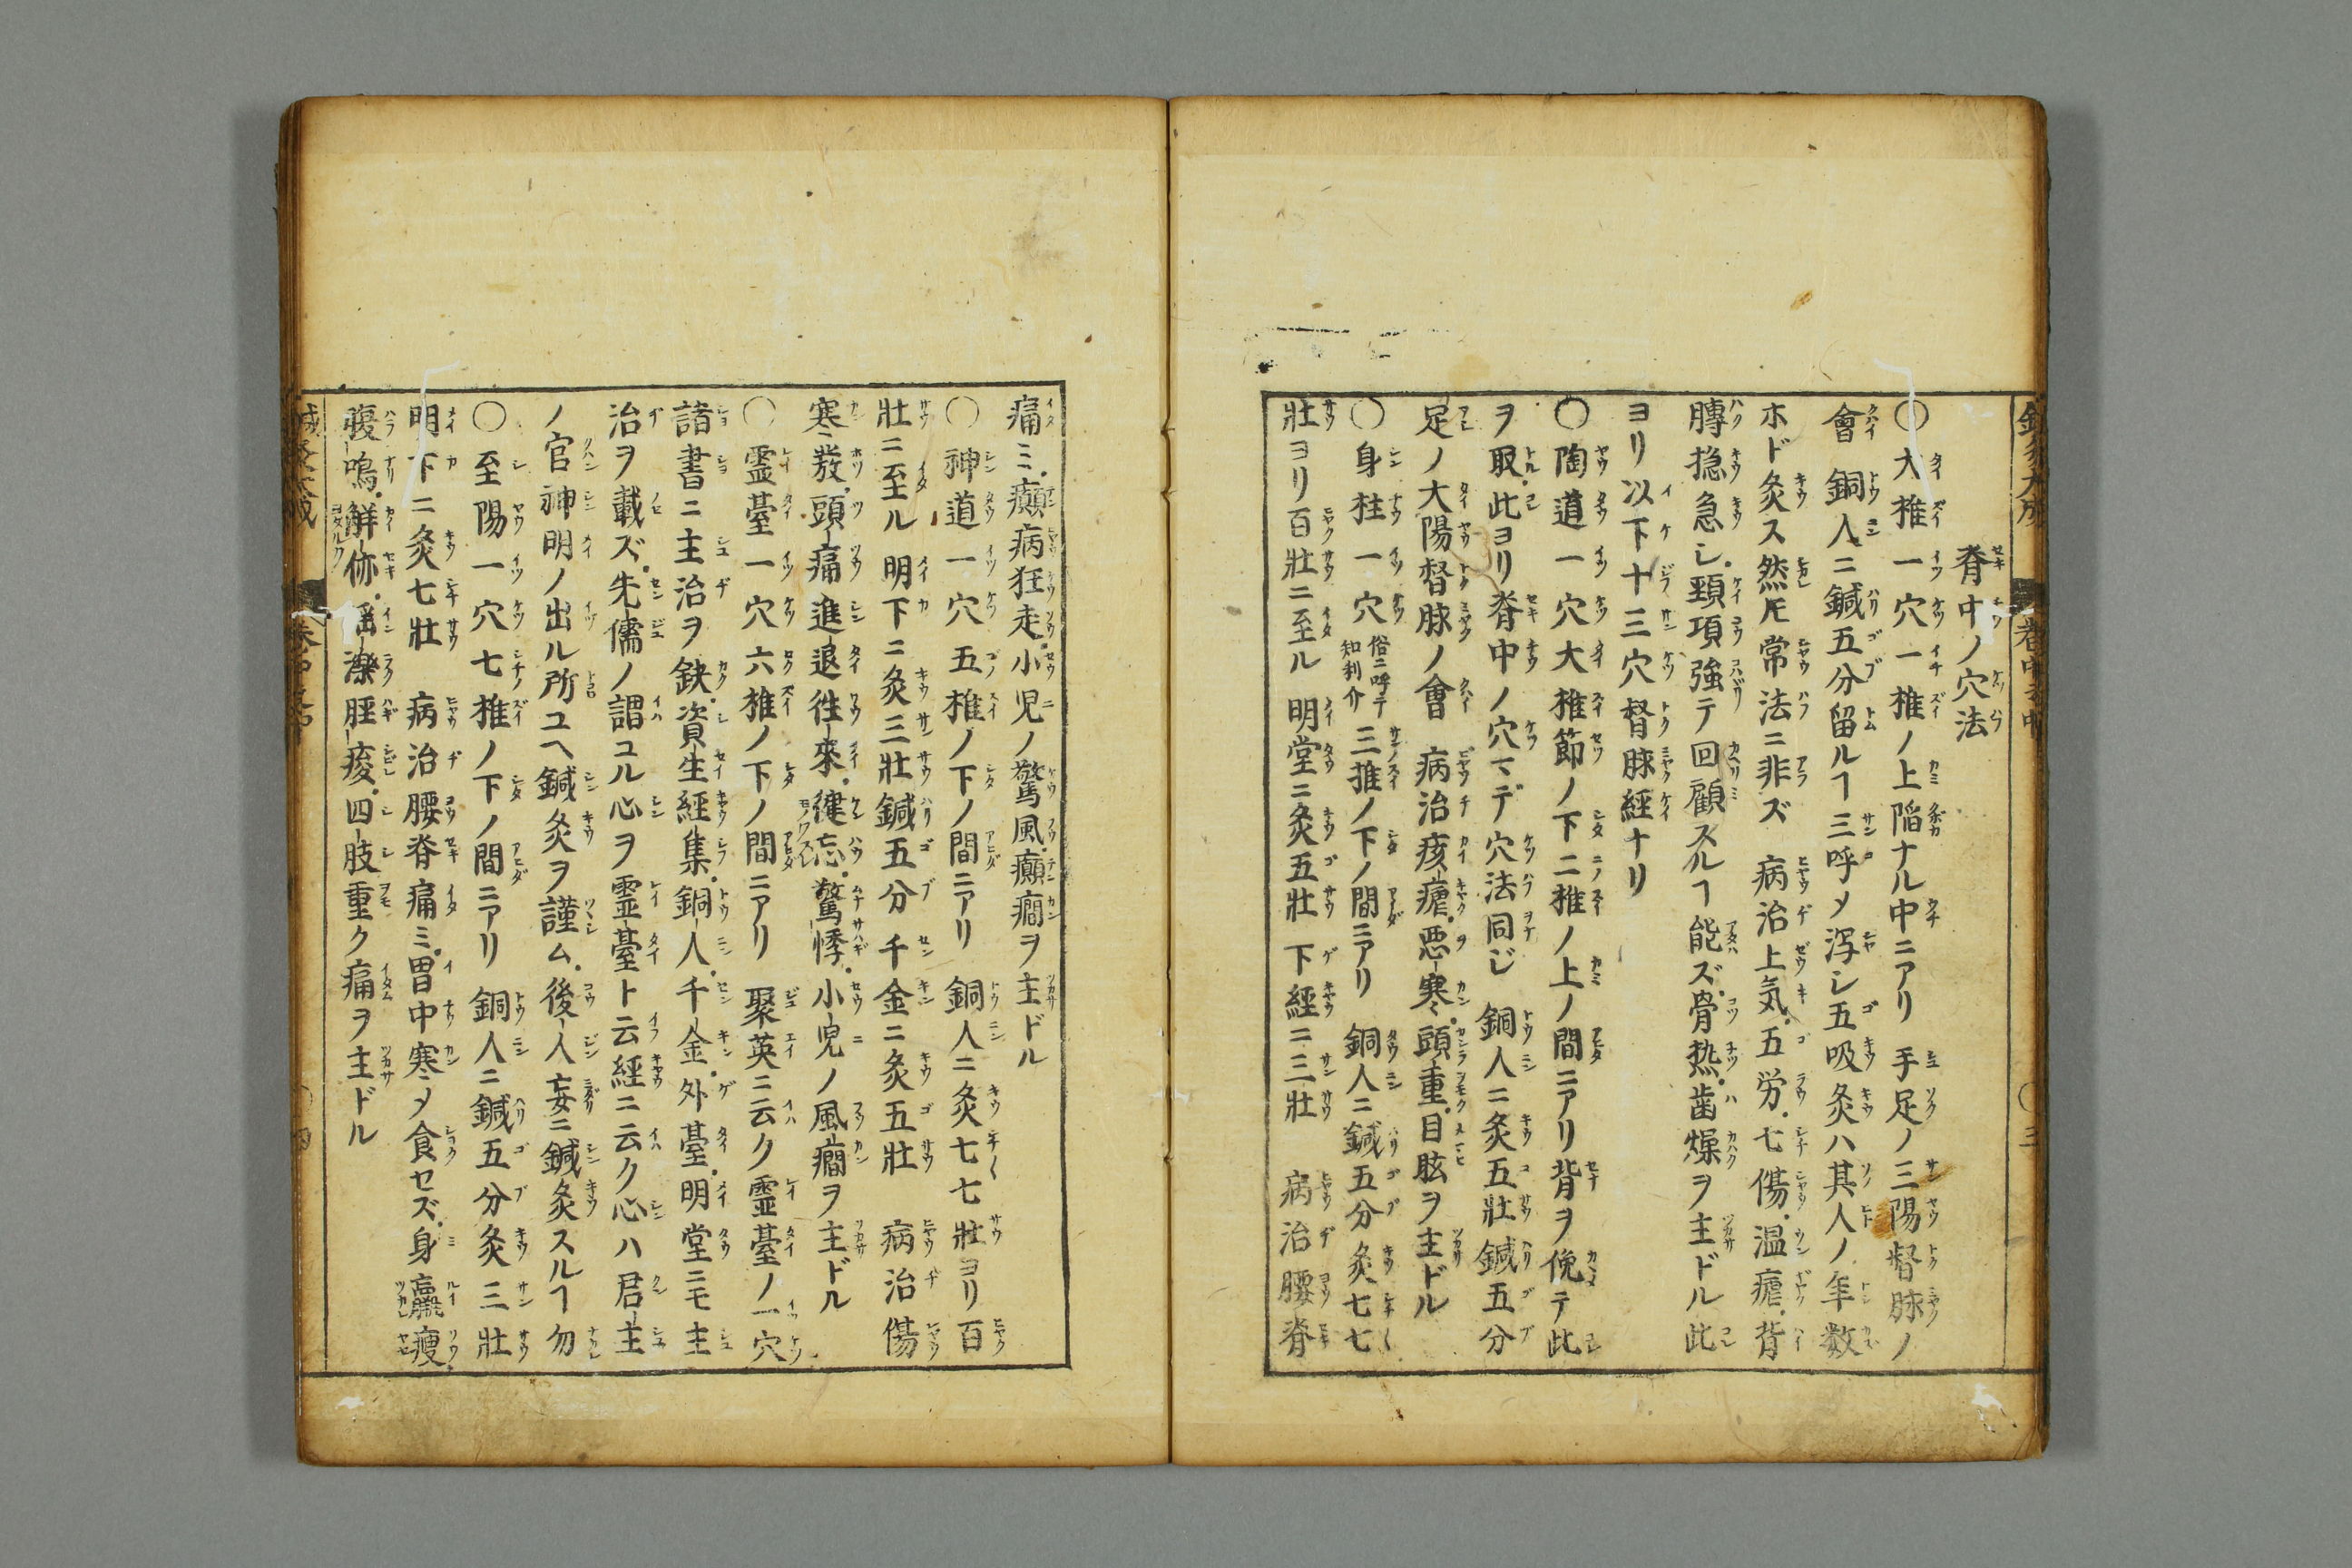 脊中ノ穴法
〇大椎一穴一椎ノ上陥ナル中ニアリ 手足ノ三陽督脉ノ
會 銅人ニ鍼五分留ルヿ三呼〆瀉シ五吸灸ハ其人ノ年数
ホド灸ス然𪜈常法ニ非ズ 病治上気.五労.七傷.温瘧.背
膊㧾急シ.頚項強テ回顧スルヿ能ズ.骨热.歯燥ヲ主ドル此
ヨリ以下十三穴督脉經ナリ
〇陶道一穴大椎節ノ下二椎ノ上ノ間ニアリ背ヲ俛テ此
ヲ取.此ヨリ脊中ノ穴マデ穴法同じ 銅人ニ灸五壯鍼五分
足ノ大陽督脉ノ會 病治痎瘧.悪寒.頭重.目眩ヲ主ドル
〇身柱一穴 俗ニ呼テ知利介 三椎ノ下ノ間ニアリ 銅人ニ鍼五分灸七七
壯ヨリ百壯ニ至ル 明堂ニ灸五壯 下經ニ三壯 病治腰脊
痛ミ.癲病狂走.小児ノ驚風.癲癇ヲ主ドル
〇神道一穴五椎ノ下ノ間ニアリ 銅人ニ灸七七壯ヨリ百
壯ニ至ル 明下ニ灸三壯鍼五分 千金ニ灸五壯 病治傷
寒発.頭痛進退徃來.健忘.驚悸.小児ノ風癇ヲ主ドル
〇靈臺一穴六椎ノ下ノ間ニアリ 聚英ニ云ク靈臺ノ一穴
諸書ニ主治ヲ缺.資生經集.銅人.千金.外臺.明堂ニモ主
治ヲ載ズ.先儒ノ謂ユル心ヲ靈臺ト云經ニ云ク心ハ君主
ノ官神明ノ出ル所ユヘ鍼灸ヲ謹ム.後人妄ニ鍼灸スルヿ勿
〇至陽一穴七椎ノ下ノ間ニアリ 銅人ニ鍼五分灸三壯
明下ニ灸七壯 病治腰脊痛ミ.胃中寒〆食セズ.身羸瘦.
腹鳴.解㑊.淫濼脛痠.四肢重ク痛ヲ主ドル